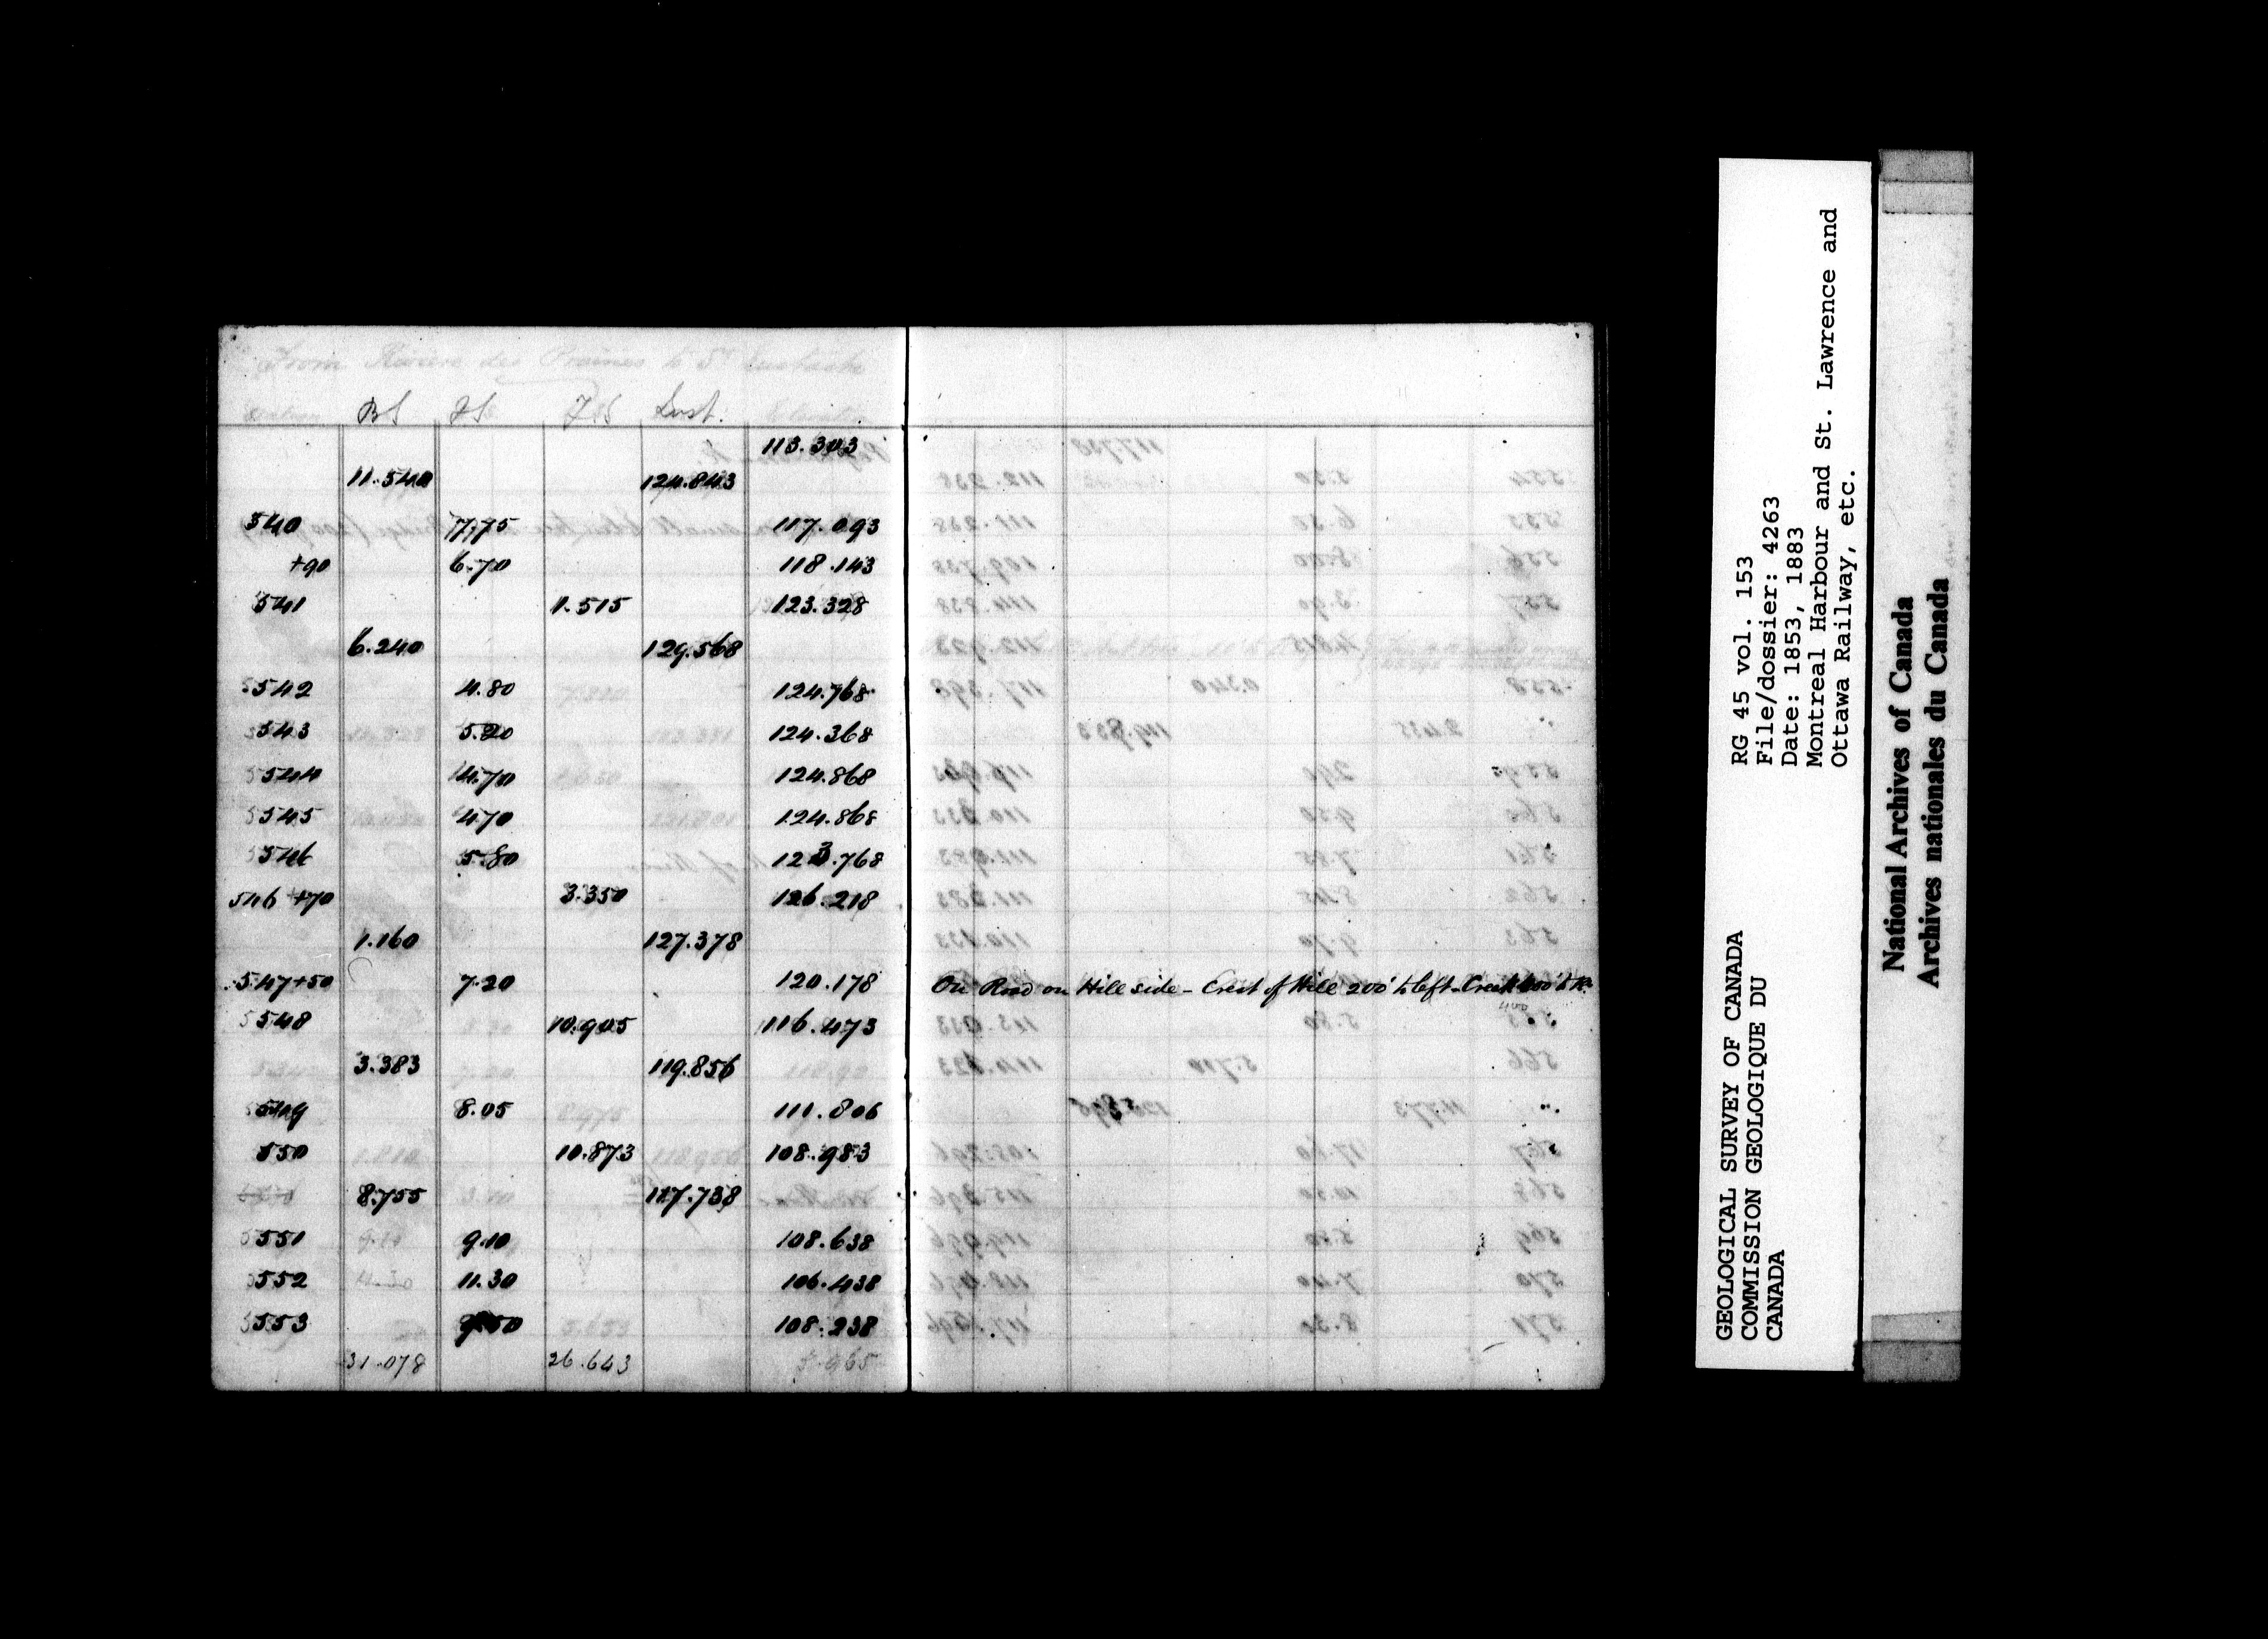 From Riviere des Prairies to St Eustache
Station BS FS FS Inst. Elevation
113.303
11.540 124.843
540 7.75 117.093
+90 6.70 118.143
541 1.515 123.328
6.240 129.568
542 4.80 124.768
543 5.20 124.368
544 4.70 124.868
545 4.70 124.868
546 5.80 123.768
546 +70 3.350 126.218
1.160 127.378
547+50 7.20 120.178 On Road on Hill side - Crest of Hill 200' to left - Creek
400
548 10.905 116.473
3.383 119.856
549 8.05 111.806
550 10.873 108.983
8.755 117.738
551 9.10 108.638
552 11.30 106.438
553 9.50 108.238
31.078 26.643
GEOLOGICAL SURVEY OF CANADA
COMMISSION GEOLOGIQUE DU
CANADA
RG 45 vol. 153
File/dossier: 4263
Date: 1853, 1883
Montreal Harbour and St. Lawrence and
Ottawa Railway, etc.
National Archives of Canada
Archives nationales du Canada